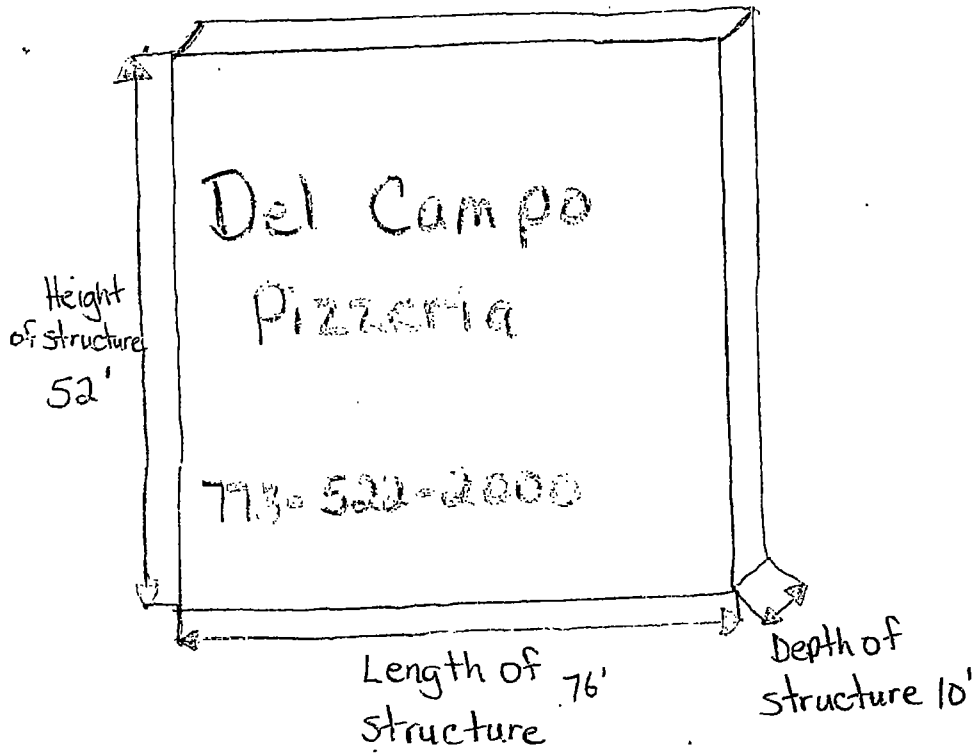 Del Campo
Pizzeria
773-522-2000
Height
of structure
52'
Length of 76'
structure
Depth of
structure 10'